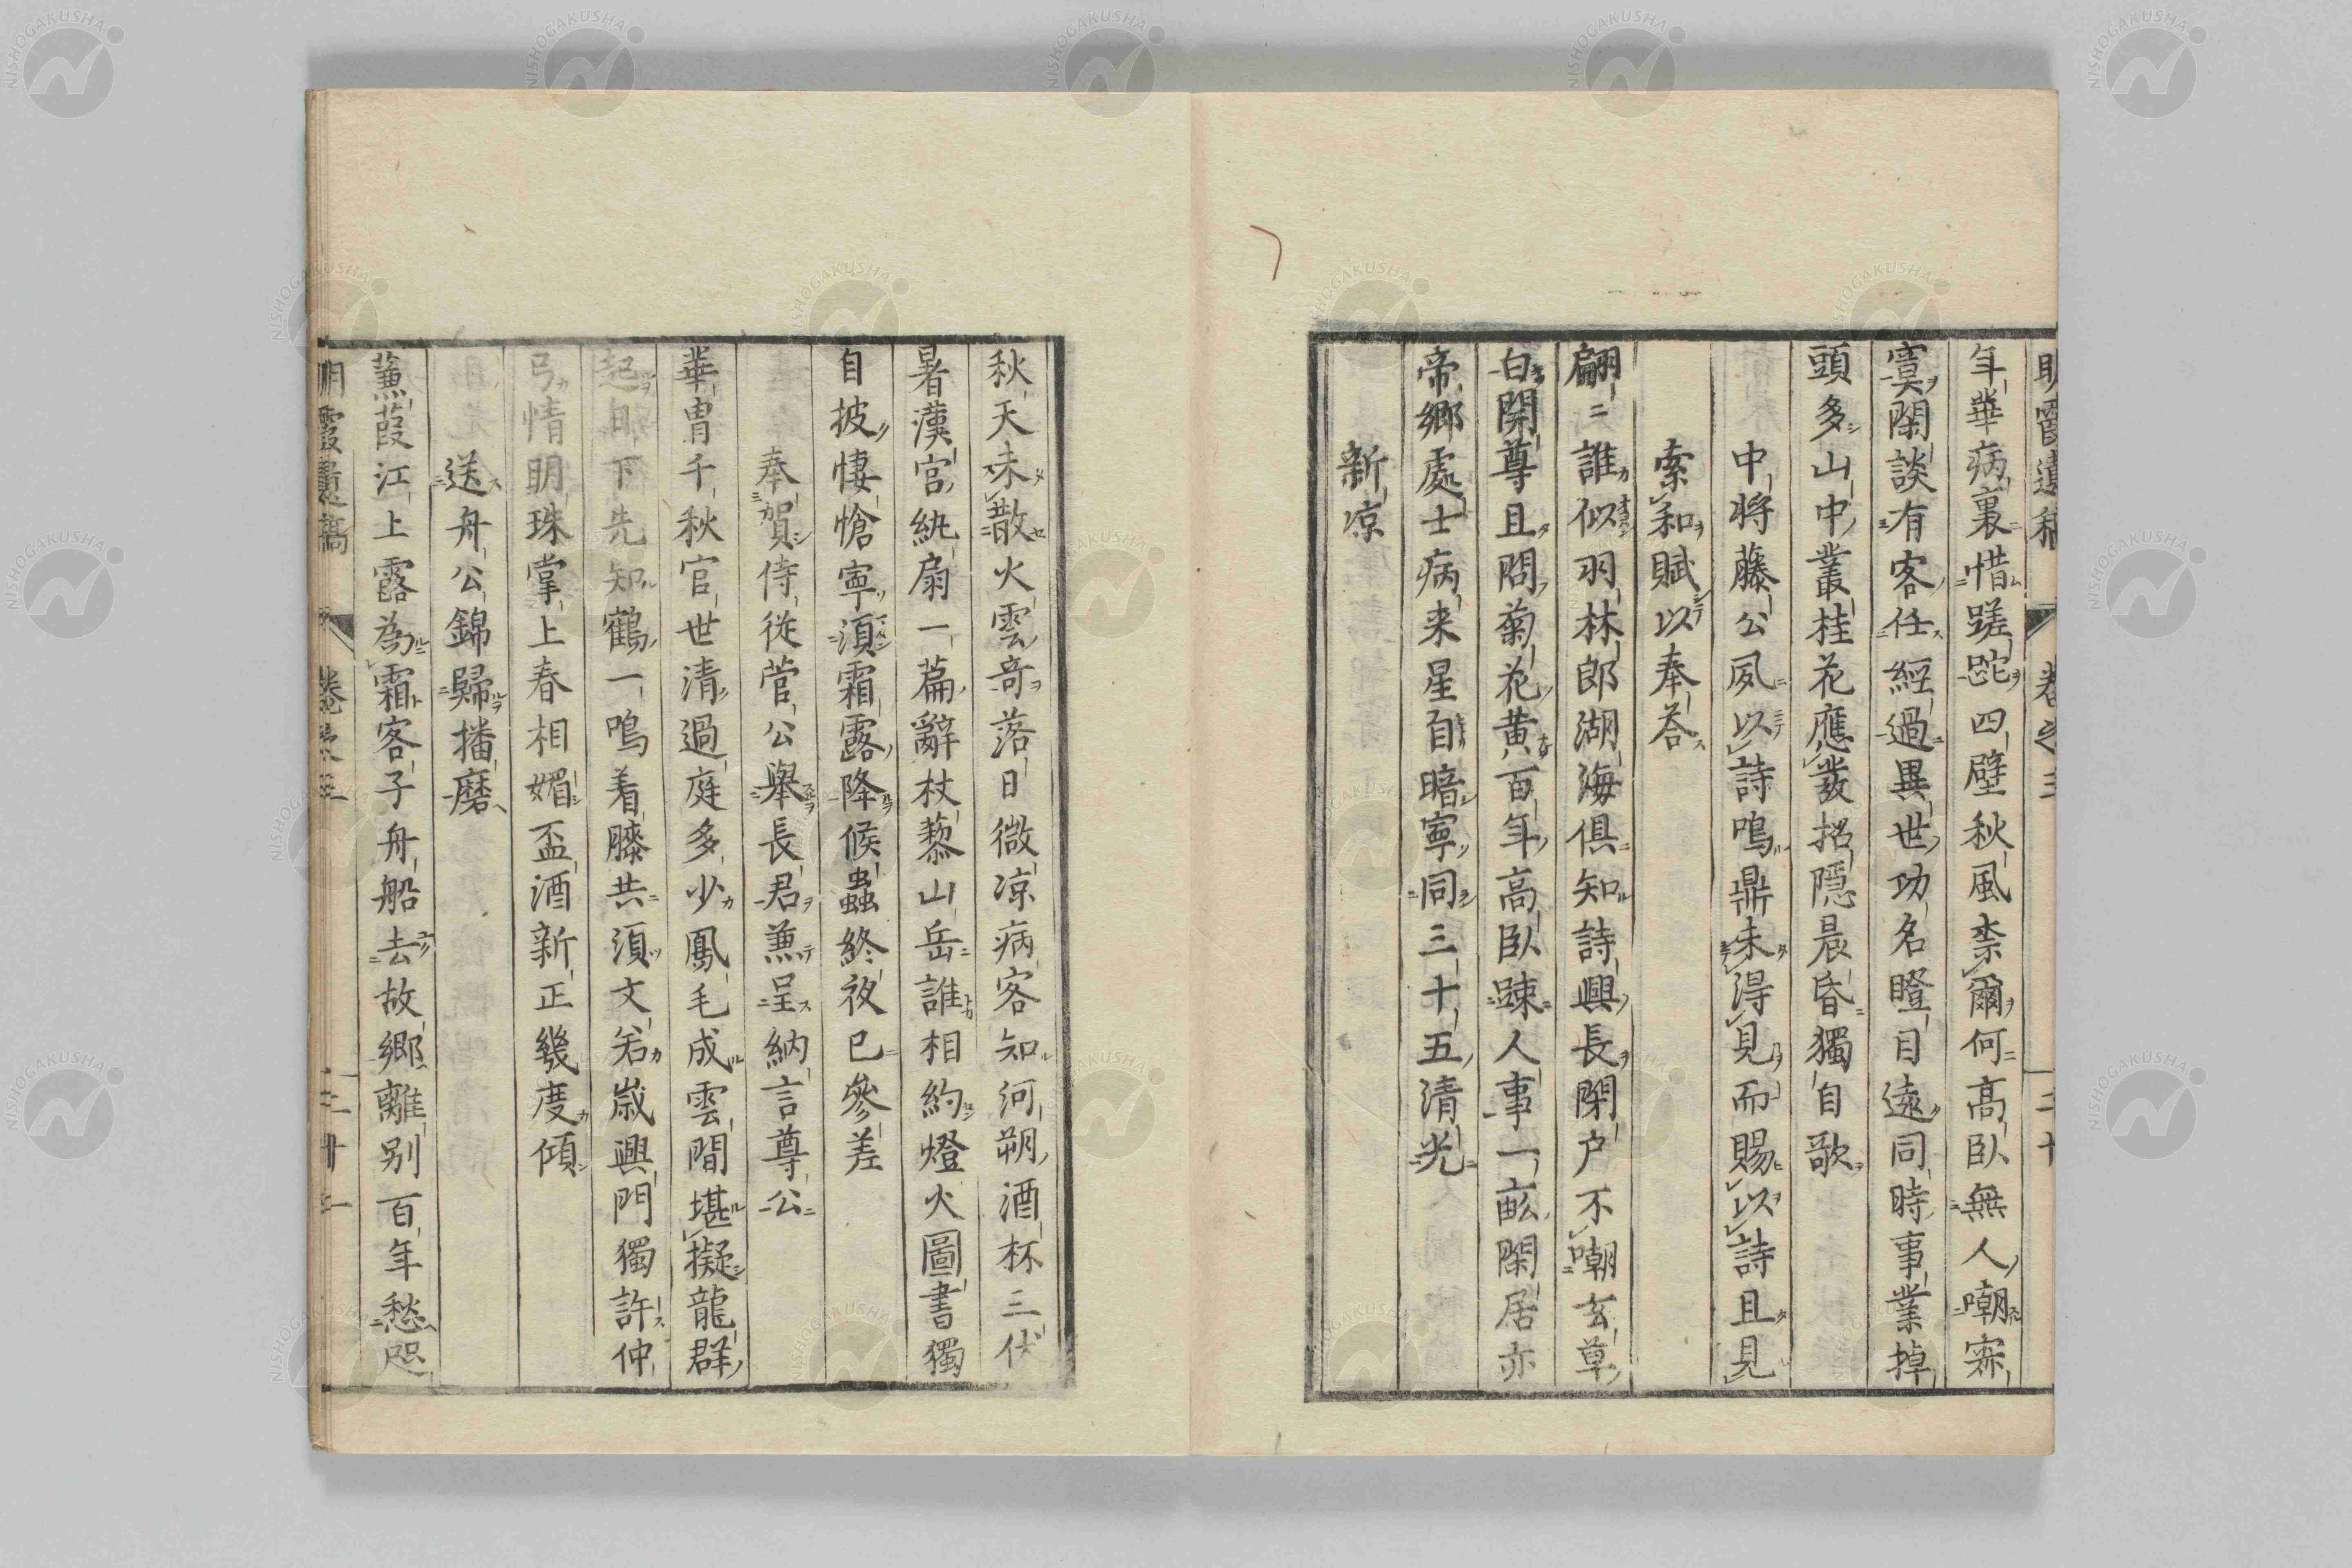 年華病裏惜蹉跎四壁秋風柰爾何高臥無人嘲寂
寞閑談有客任經過異世功名瞪目遠同時事業掉
頭多山中叢桂花應發招隱晨昏獨自歌
中將藤公夙以詩鳴鼎未得見而賜以詩且見
索和賦以奉荅
翩〻誰似羽林郎湖海俱知詩興長閑户不嘲玄草
白開尊且問菊花黃百年高臥踈人事一畝閑居亦
帝鄉處士病来星自暗寧同三十五清光
新凉
秋天未散火雲奇落日微凉病客知河朔酒杯三伏
暑漢宮紈扇一篇辭杖藜山岳誰相約燈火圖書獨
自披悽愴寧須霜露降候蟲終夜已參差
奉賀侍從菅公舉長君兼呈納言尊公
華冑千秋官世清過庭多少鳳毛成雲間堪擬龍群
起日下先知鶴一鳴着膝共須文若歲興門獨許仲
弓情明珠掌上春相媚盃酒新正幾度傾
送舟公錦歸播磨
蒹葭江上露為霜客子舟船去故鄉離别百年愁咫
明霞遺稿 卷之三 二十
明霞遺稿 卷之三 二十一
NISHOGAKUSHA